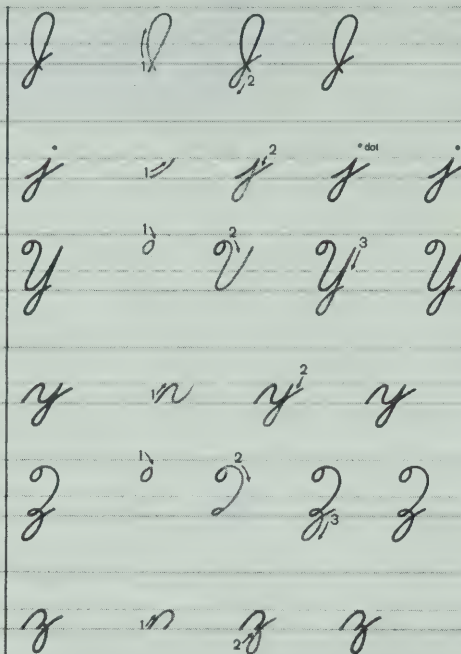 J 1 J 2 J
j 1 j 2 j dot j
Y 1 2 Y 3 Y
y 1 y 2 y
Z 1 2 Z 3 Z
z 1 2 z z